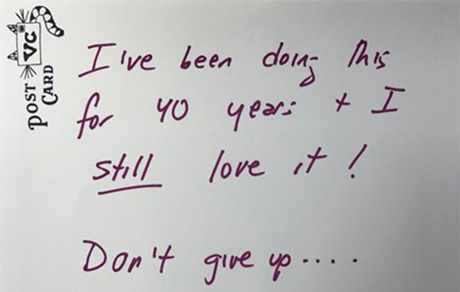 VC
POST
CARD
I've been doing this
for 40 years + I
still love it!
Don't give up....